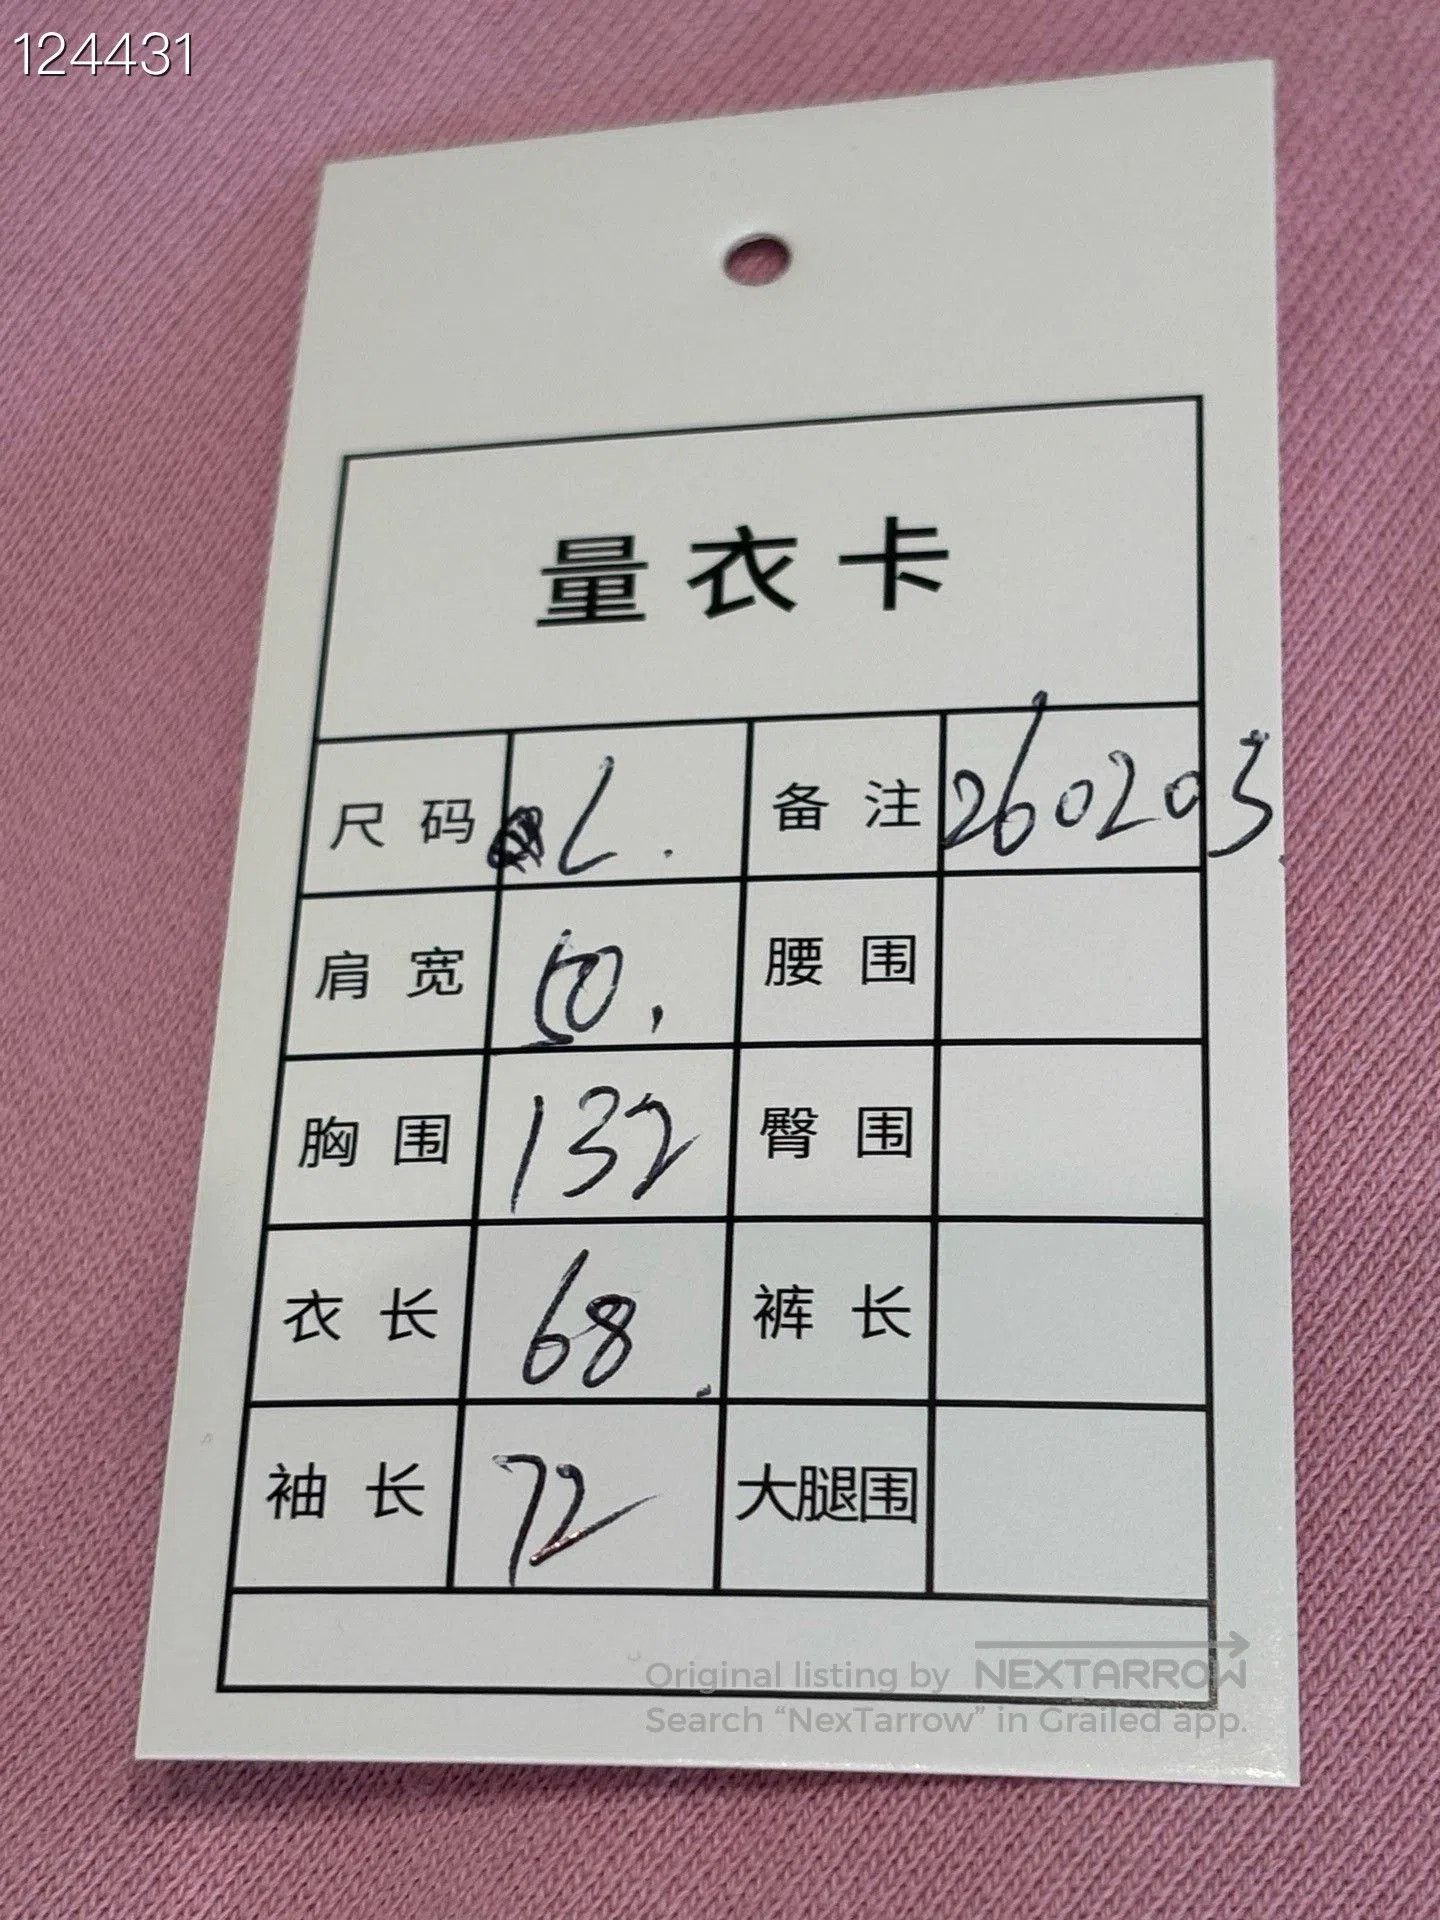 124431
量衣卡
尺码 L. 备注 260203.
肩宽 50. 腰围
胸围 132 臀围
衣长 68. 裤长
袖长 72 大腿围
Original listing by NEXTARROW
Search “NexTarrow” in Grailed app.